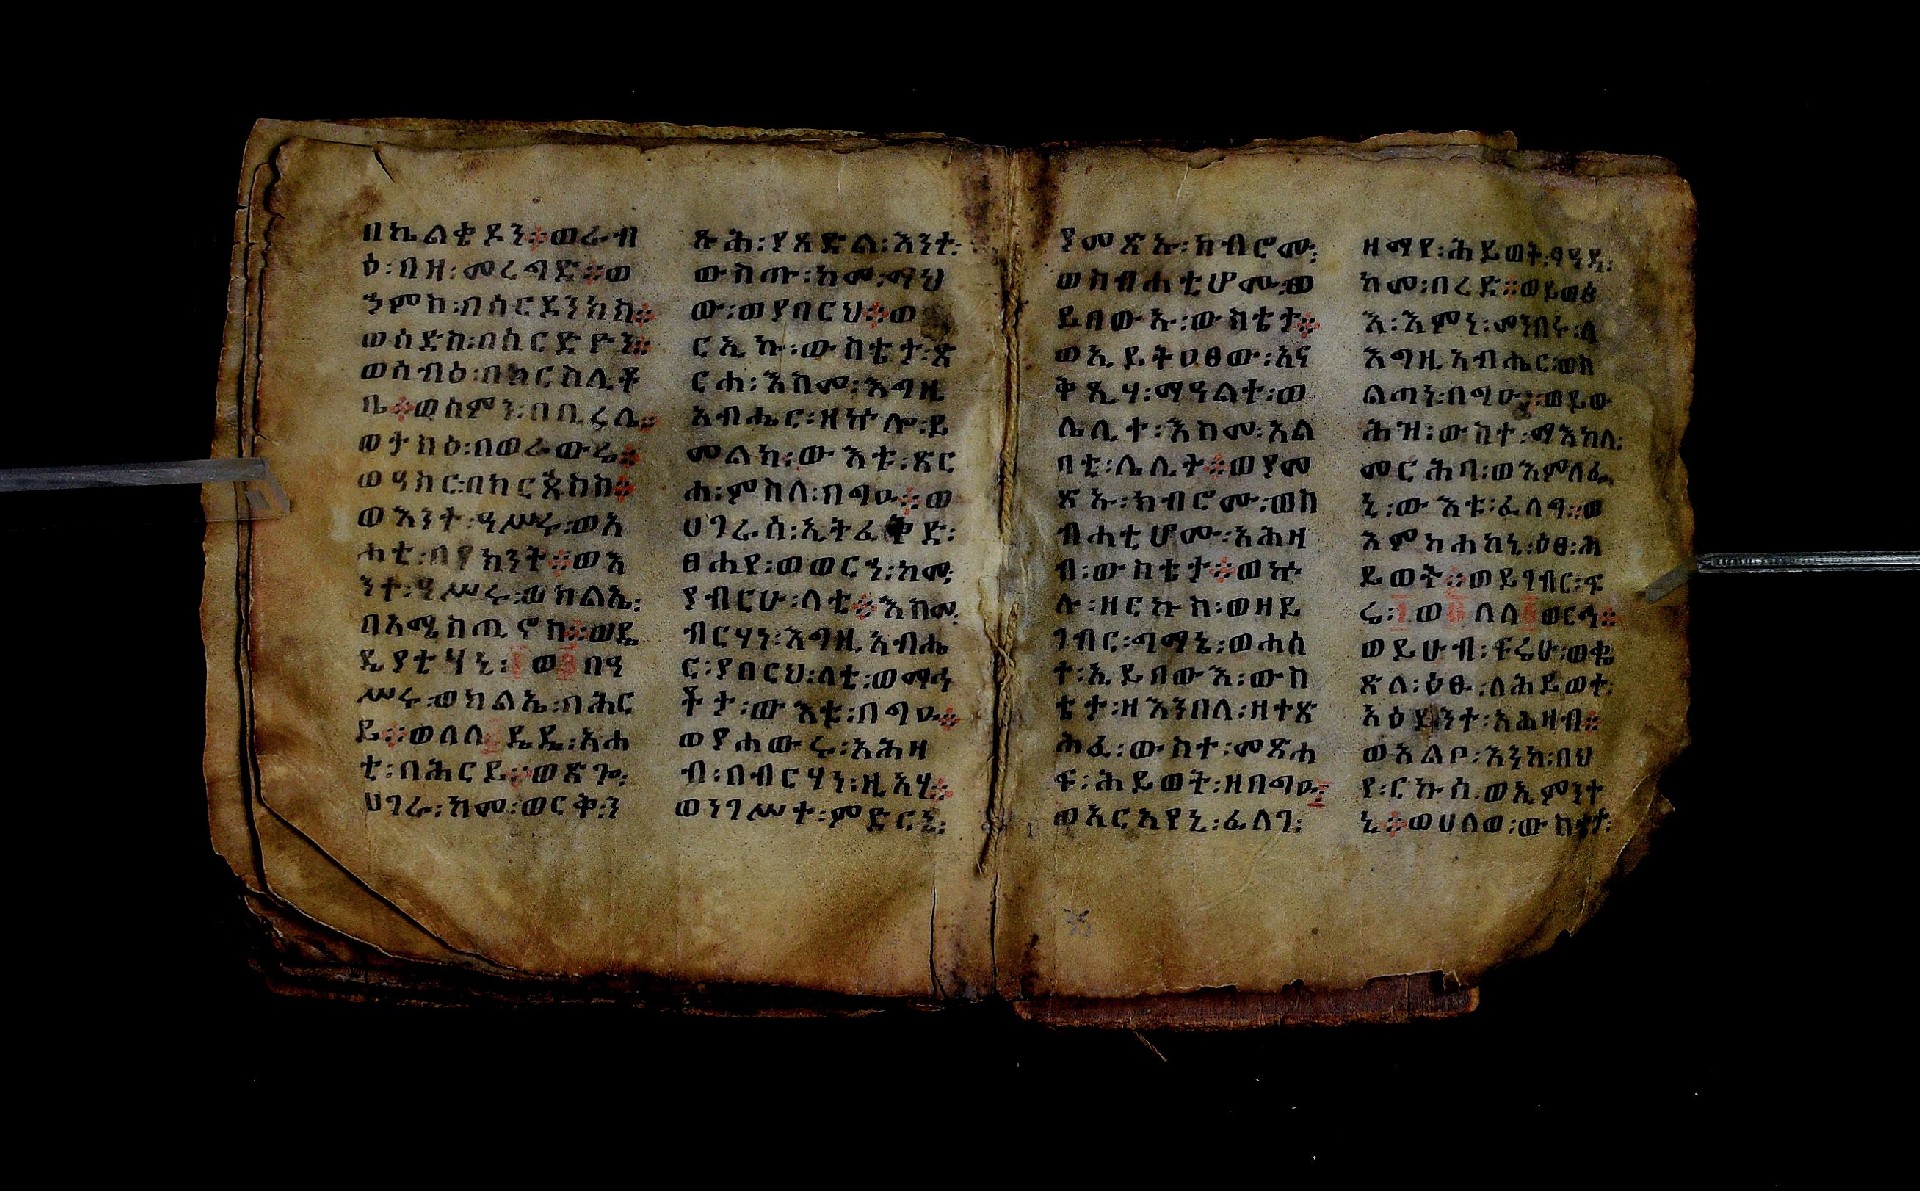 በኬልቄዶን፨ወራብ
ዕ፡በዘ፡መረግድ፨ወ
ኃምስ፡በሰርደንክስ፨
ወሰድስ፡በሰርድዮን፨
ወሰብዕ፡በክርስሊቶ
ቤ፨ወስምን፡በቢረሌ፨
ወታስዕ፡በወራውሬ፨
ወዓስር፡በክርጵስስ፨
ወእንተ፡ዓሥሩ፡ወአ
ሐቲ፡በያክንት፨ወእ
ንተ፡ዓሥሩ፡ወክልኤ፡
በአሜከጢኖስ፨ወዴ
ዴያቲሃኒ፡፲ወ፪በዓ
ሥሩ፡ወክልኤ፡ባሕር
ይ፨ወለለ፩ዴዴ፡አሐ
ቲ፡ባሕርይ፨ወጽጐ፡
ሀገራ፡ከመ፡ወርቅ፡ን
ጹሕ፡ያጸድል፡እንተ፡
ውስጡ፡ከመ፡ማህ
ው፡ወያበርህ፨ወ
ርኢኩ፡ውስቴታ፡ጽ
ርሐ፡እስመ፡እግዚ
አብሔር፡ዘኵሎ፡ይ
መልክ፡ውእቱ፡ጽር
ሐ፡ምስለ፡በግዑ፨ወ
ሀገራስ፡ኢትፈቅድ፡
ፀሐየ፡ወወርኃ፡ከመ፡
ያብርሁ፡ላቲ፨እስመ፡
ብርሃነ፡እግዚአብሔ
ር፡ያበርህ፡ላቲ፡ወማኅ
ቶታ፡ውእቱ፡በግዑ፨
ወያሐውሩ፡አሕዛ
ብ፡በብርሃን፡ዚአሃ፨
ወነገሥተ፡ምድርኒ፡
ያመጽኡ፡ክብሮሙ፡
ወስብሐቲሆሙ፡ወ
ይበውኡ፡ውስቴታ፨
ወኢይትዐፀው፡አና
ቅጺሃ፡ማዓልተ፡ወ
ሌሊተ፡እስመ፡አል
ባቲ፡ሌሊት፨ወያመ
ጽኡ፡ክብሮሙ፡ወስ
ብሐቲሆሙ፡አሕዛ
ብ፡ውስቴታ፨ወኵ
ሉ፡ዘርኩስ፡ወዘይ
ገብር፡ግማኔ፡ወሐሰ
ተ፡ኢይበውእ፡ውስ
ቴታ፡ዘእንበለ፡ዘተጽ
ሕፈ፡ውስተ፡መጽሐ
ፍ፡ሕይወት፡ዘበግዑ፡
ወአርአየኒ፡ፈለገ፡
ዘማየ፡ሕይወት፡ጻዓዳ፡
ከመ፡በረድ፨ወይወፅ
እ፡እምነ፡መንበሩ፡ለ
እግዚአብሔር፡ወስ
ልጣነ፡በግዑ፡ወይው
ሕዝ፡ውስተ፡ማእከለ፡
መርሕባ፡ወእምለፌ
ኒ፡ውእቱ፡ፈለግ፨ወ
እምከሐከኒ፡ዕፀ፡ሕ
ይወት፨ወይገብር፡ፍ
ሬ፡፲ወ፪ለለ፩ወርኅ፨
ወይሁብ፡ፍሬሁ፡ወቈ
ጽለ፡ዕፁ፡ለሕይወተ፡
አዕይንተ፡አሕዛብ፨
ወአልቦ፡እንከ፡በህ
የ፡ርኩስ፡ወኢምንተ
ኒ፨ወሀለወ፡ውስቴታ፡